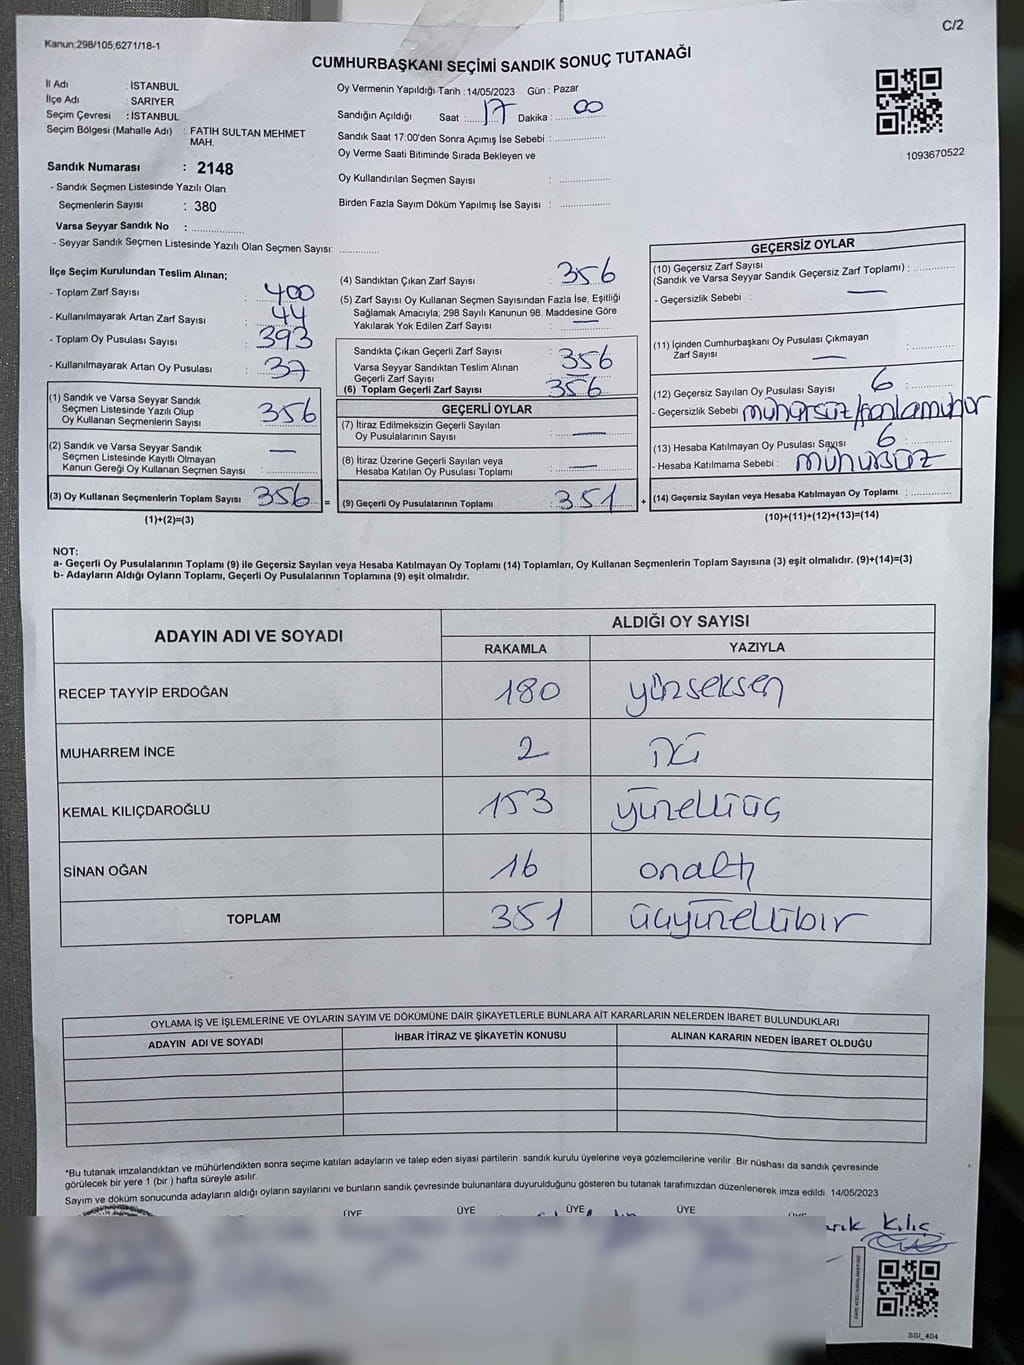 C/2
Kanun;298/105,6271/18-1
CUMHURBAŞKANI SEÇİMİ SANDIK SONUÇ TUTANAĞI
İl Adı : İSTANBUL
İlçe Adı : SARIYER
Seçim Çevresi : İSTANBUL
Seçim Bölgesi (Mahalle Adı) : FATİH SULTAN MEHMET
MAH.
Sandık Numarası : 2148
- Sandık Seçmen Listesinde Yazılı Olan
Seçmenlerin Sayısı : 380
Varsa Seyyar Sandık No :
- Seyyar Sandık Seçmen Listesinde Yazılı Olan Seçmen Sayısı:
Oy Vermenin Yapıldığı Tarih : 14/05/2023 Gün : Pazar
Sandığın Açıldığı Saat : 17 Dakika : 00
Sandık Saat 17:00'den Sonra Açımış İse Sebebi :
Oy Verme Saati Bitiminde Sırada Bekleyen ve
Oy Kullandırılan Seçmen Sayısı :
Birden Fazla Sayım Döküm Yapılmış İse Sayısı :
1093670522
İlçe Seçim Kurulundan Teslim Alınan;
- Toplam Zarf Sayısı : 400
- Kullanılmayarak Artan Zarf Sayısı : 44
- Toplam Oy Pusulası Sayısı : 393
- Kullanılmayarak Artan Oy Pusulası : 37
(1) Sandık ve Varsa Seyyar Sandık
Seçmen Listesinde Yazılı Olup
Oy Kullanan Seçmenlerin Sayısı : 356
(2) Sandık ve Varsa Seyyar Sandık
Seçmen Listesinde Kayıtlı Olmayan
Kanun Gereği Oy Kullanan Seçmen Sayısı : —
(3) Oy Kullanan Seçmenlerin Toplam Sayısı 356 =
(1)+(2)=(3)
(4) Sandıktan Çıkan Zarf Sayısı : 356
(5) Zarf Sayısı Oy Kullanan Seçmen Sayısından Fazla İse, Eşitliği
Sağlamak Amacıyla; 298 Sayılı Kanunun 98. Maddesine Göre
Yakılarak Yok Edilen Zarf Sayısı : —
Sandıkta Çıkan Geçerli Zarf Sayısı : 356
Varsa Seyyar Sandıktan Teslim Alınan
Geçerli Zarf Sayısı : —
(6) Toplam Geçerli Zarf Sayısı : 356
GEÇERLİ OYLAR
(7) İtiraz Edilmeksizin Geçerli Sayılan
Oy Pusulalarının Sayısı : —
(8) İtiraz Üzerine Geçerli Sayılan veya
Hesaba Katılan Oy Pusulası Toplamı : —
(9) Geçerli Oy Pusulalarının Toplamı : 351 +
GEÇERSİZ OYLAR
(10) Geçersiz Zarf Sayısı
(Sandık ve Varsa Seyyar Sandık Geçersiz Zarf Toplamı) :
- Geçersizlik Sebebi : —
(11) İçinden Cumhurbaşkanı Oy Pusulası Çıkmayan
Zarf Sayısı : —
(12) Geçersiz Sayılan Oy Pusulası Sayısı : 6
- Geçersizlik Sebebi
(13) Hesaba Katılmayan Oy Pusulası Sayısı : 6
- Hesaba Katılmama Sebebi : mühürsüz
(14) Geçersiz Sayılan veya Hesaba Katılmayan Oy Toplamı :
(10)+(11)+(12)+(13)=(14)
NOT:
a- Geçerli Oy Pusulalarının Toplamı (9) ile Geçersiz Sayılan veya Hesaba Katılmayan Oy Toplamı (14) Toplamları, Oy Kullanan Seçmenlerin Toplam Sayısına (3) eşit olmalıdır. (9)+(14)=(3)
b- Adayların Aldığı Oyların Toplamı, Geçerli Oy Pusulalarının Toplamına (9) eşit olmalıdır.
ADAYIN ADI VE SOYADI
ALDIĞI OY SAYISI
RAKAMLA YAZIYLA
RECEP TAYYİP ERDOĞAN 180 yüzseksen
MUHARREM İNCE 2 iki
KEMAL KILIÇDAROĞLU 153 yüzelliüç
SİNAN OĞAN 16 onaltı
TOPLAM 351 üçyüzellibir
OYLAMA İŞ VE İŞLEMLERİNE VE OYLARIN SAYIM VE DÖKÜMÜNE DAİR ŞİKAYETLERLE BUNLARA AİT KARARLARIN NELERDEN İBARET BULUNDUKLARI
ADAYIN ADI VE SOYADI İHBAR İTİRAZ VE ŞİKAYETİN KONUSU ALINAN KARARIN NEDEN İBARET OLDUĞU
*Bu tutanak imzalandıktan ve mühürlendikten sonra seçime katılan adayların ve talep eden siyasi partilerin sandık kurulu üyelerine veya gözlemcilerine verilir Bir nüshası da sandık çevresinde
görülecek bir yere 1 (bir ) hafta süreyle asılır.
Sayım ve döküm sonucunda adayların aldığı oyların sayılarını ve bunların sandık çevresinde bulunanlara duyurulduğunu gösteren bu tutanak tarafımızdan düzenlenerek imza edildi. 14/05/2023
ÜYE ÜYE ÜYE ÜYE
Kılıç
SSI_404